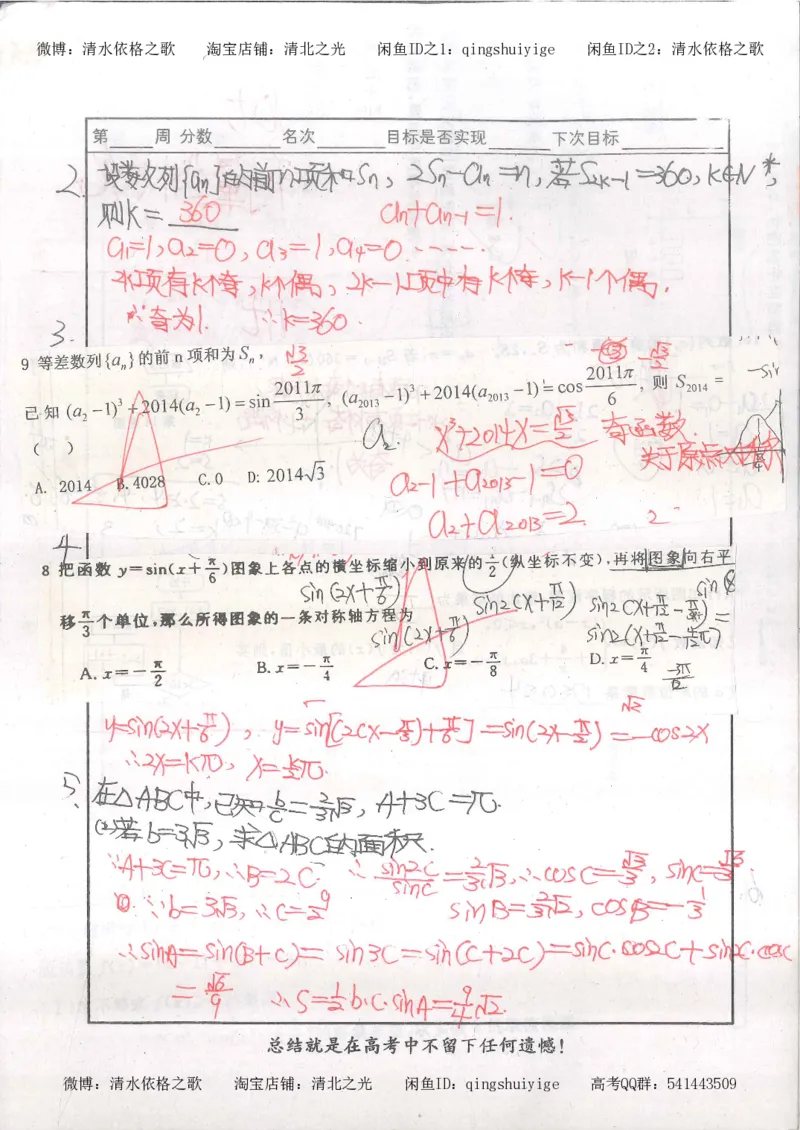 微博：清水依格之歌 淘宝店铺：清北之光 闲鱼ID之1：qingshuiyige 闲鱼ID之2：清水依格之歌
第____周 分数______ 名次______ 目标是否实现______ 下次目标______
2. 设数列{an}的前n项和Sn, 2Sn-an=n, 若S2k-1=360, k∈N*,
则k= 360 an+an-1=1.
a1=1, a2=0, a3=1, a4=0.-----
2k项有k个奇, k个偶, 2k-1项中有k个奇, k-1个偶.
∴奇为1. ∴k=360.
3.
9 等差数列{an}的前n项和为Sn,
已知 (a2-1)³+2014(a2-1)=sin 2011π/3, (a2013-1)³+2014(a2013-1)=cos 2011π/6, 则 S2014 =
( )
x³+2014x=√3/2 奇函数.
关于原点对称
A. 2014 B. 4028 C. 0 D: 2014√3
a2-1+a2013-1=0
a2+a2013=2.
4
8 把函数 y=sin(x+π/6)图象上各点的横坐标缩小到原来的1/2(纵坐标不变),再将图象向右平
移π/3个单位,那么所得图象的一条对称轴方程为
sin(2x+π/6)
sin2(x+π/12)
A. x=-π/2 B. x=-π/4 C. x=-π/8 D. x=π/4
y=sin(2x+π/6), y=sin[2(x-π/3)+π/6]=sin(2x-π/2)=-cos2x
∴2x=kπ, x=k/2π.
5. 在△ABC中,已知b/c=2/3√3, A+3C=π.
(2)若b=3√3, 求△ABC的面积.
∵A+3C=π, ∴B=2C ∴ sin2C/sinC=2/3√3, ∴cosC=√3/3, sinC=√6/3
∵b=3√3, ∴c=9/2 sinB=2/3√2, cosB=-1/3
∴sinA=sin(B+C)=sin3C=sin(C+2C)=sinC·cos2C+sin2C·cosC
=√6/9 ∴S=1/2b·c·sinA=9/4√2.
总结就是在高考中不留下任何遗憾!
微博：清水依格之歌 淘宝店铺：清北之光 闲鱼ID：qingshuiyige 高考QQ群：541443509